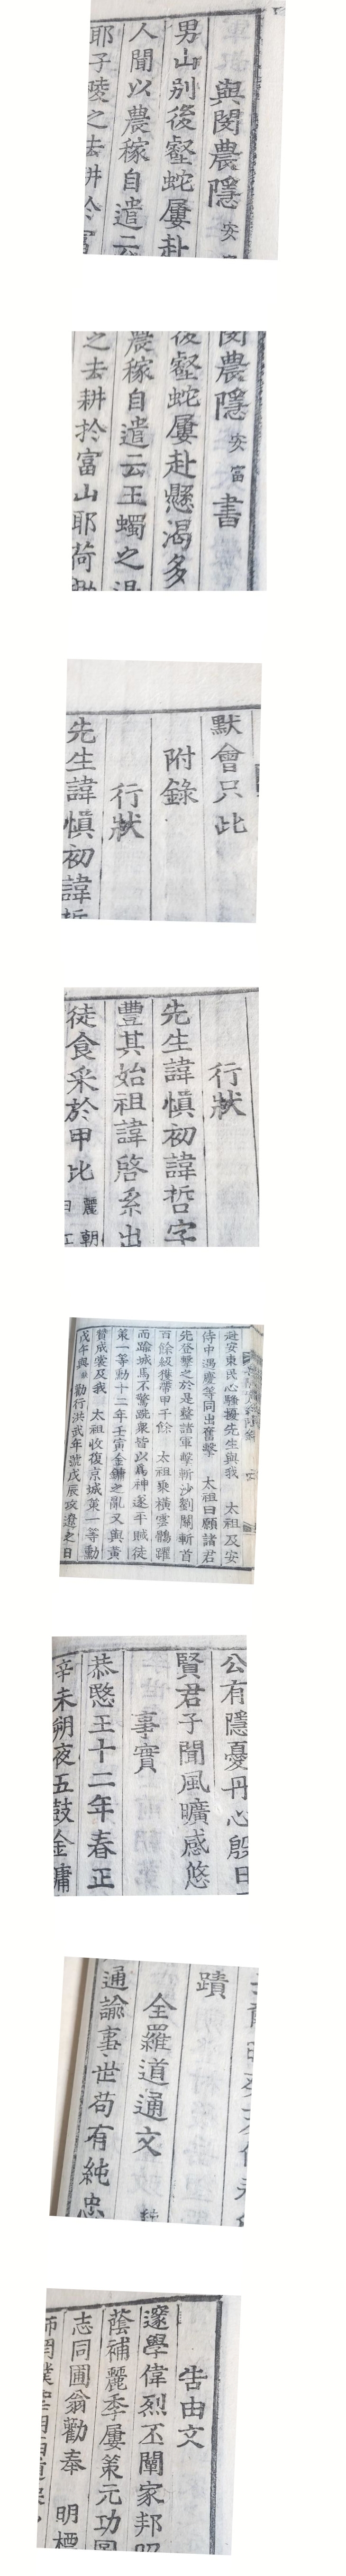 與閔農隱 安
男山別後壑蛇屢赴
人聞以農稼自遣云
耶子陵之去耕於富
閔農隱 安富 書
後壑蛇屢赴懸渴多
農稼自遣云王蠋之退
之去耕於富山耶荷
默會只此
附錄
行狀
先生諱愼初諱哲
行狀
先生諱愼初諱哲字
豐其始祖諱啓系出
徒食采於甲比 麗朝
赴安東民心騷擾先生與我 太祖及安
侍中遇慶等同出奮擊 太祖曰願諸君
先登擊之於是整諸軍擊斬沙劉關斬首
百餘級獲帶甲千餘 太祖乘橫雲鶻躍
而踰城馬不驚跪衆皆以爲神遂平賊徒
策一等勳十二年壬寅金鏞之亂又與黃
贊成裳及我 太祖收復京城策一等勳
戊午與 勸行洪武年號戊辰攻遼之日
公有隱憂丹心殷日
賢君子聞風曠感悠
事實
恭愍王十二年春正
辛未朔夜五鼓金鏞
蹟
全羅道通文
通諭事世苟有純忠
告由文
邃學偉烈丕闡家邦
蔭補麗季屢策元功
志同圃翁勸奉 明